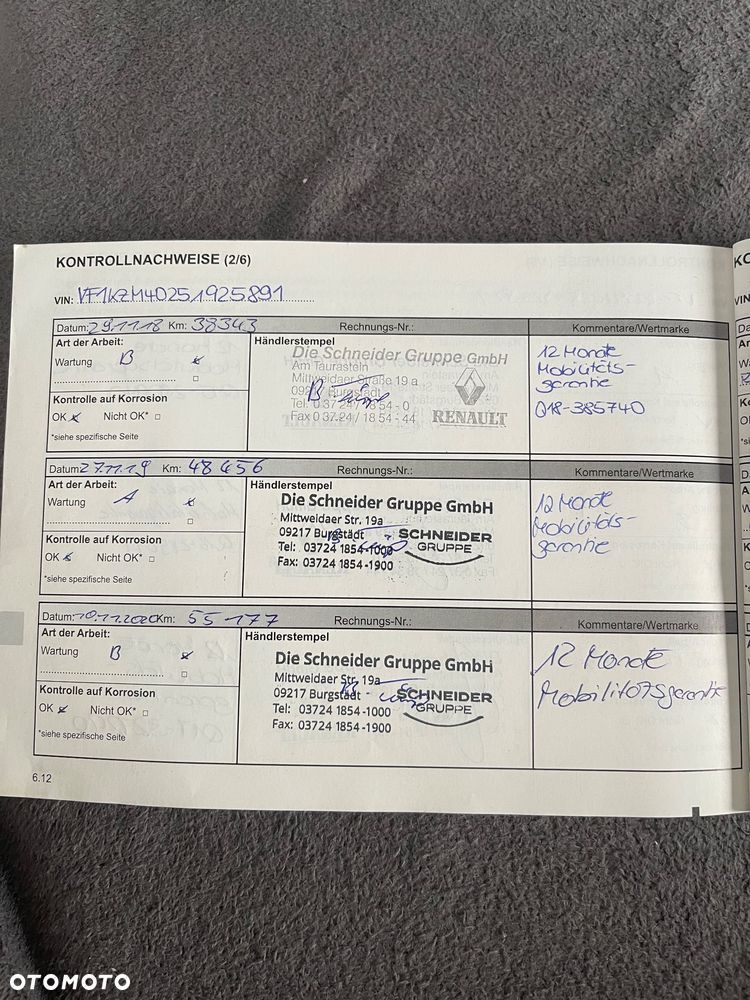 KONTROLLNACHWEISE (2/6)
VIN: VF1KZM4D251925891
Datum: 29.11.18 Km: 38343 Rechnungs-Nr.: Kommentare/Wertmarke
Art der Arbeit: Händlerstempel
Wartung B
Die Schneider Gruppe GmbH
Am Taurastein
Mittweidaer Straße 19 a
Burgstädt
Tel: 0 37 24 / 18 54 - 0
Fax 0 37 24 / 18 54 - 44
RENAULT
12 Monate
Mobilitäts-
garantie
Q18-385740
Kontrolle auf Korrosion
OK Nicht OK*
*siehe spezifische Seite
Datum: 27.11.19 Km: 48456 Rechnungs-Nr.: Kommentare/Wertmarke
Art der Arbeit: Händlerstempel
Wartung A
Die Schneider Gruppe GmbH
Mittweidaer Str. 19a
09217 Burgstädt
Tel: 03724 1854-1000
Fax: 03724 1854-1900
SCHNEIDER
GRUPPE
12 Monate
Mobilitäts-
garantie
Kontrolle auf Korrosion
OK Nicht OK*
*siehe spezifische Seite
Datum: 10.11.2020 Km: 55 177 Rechnungs-Nr.: Kommentare/Wertmarke
Art der Arbeit: Händlerstempel
Wartung B
Die Schneider Gruppe GmbH
Mittweidaer Str. 19a
09217 Burgstädt
Tel: 03724 1854-1000
Fax: 03724 1854-1900
SCHNEIDER
GRUPPE
12 Monate
Mobilitätsgarantie
Kontrolle auf Korrosion
OK Nicht OK*
*siehe spezifische Seite
6.12
OTOMOTO